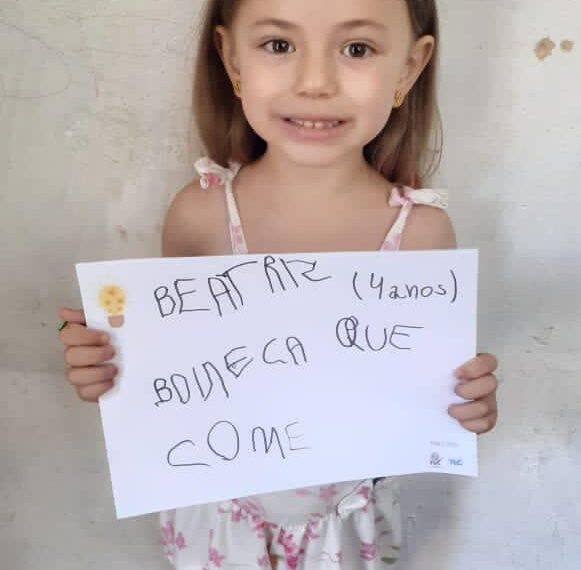 BEATRIZ (4 anos)
BONECA QUE
COME